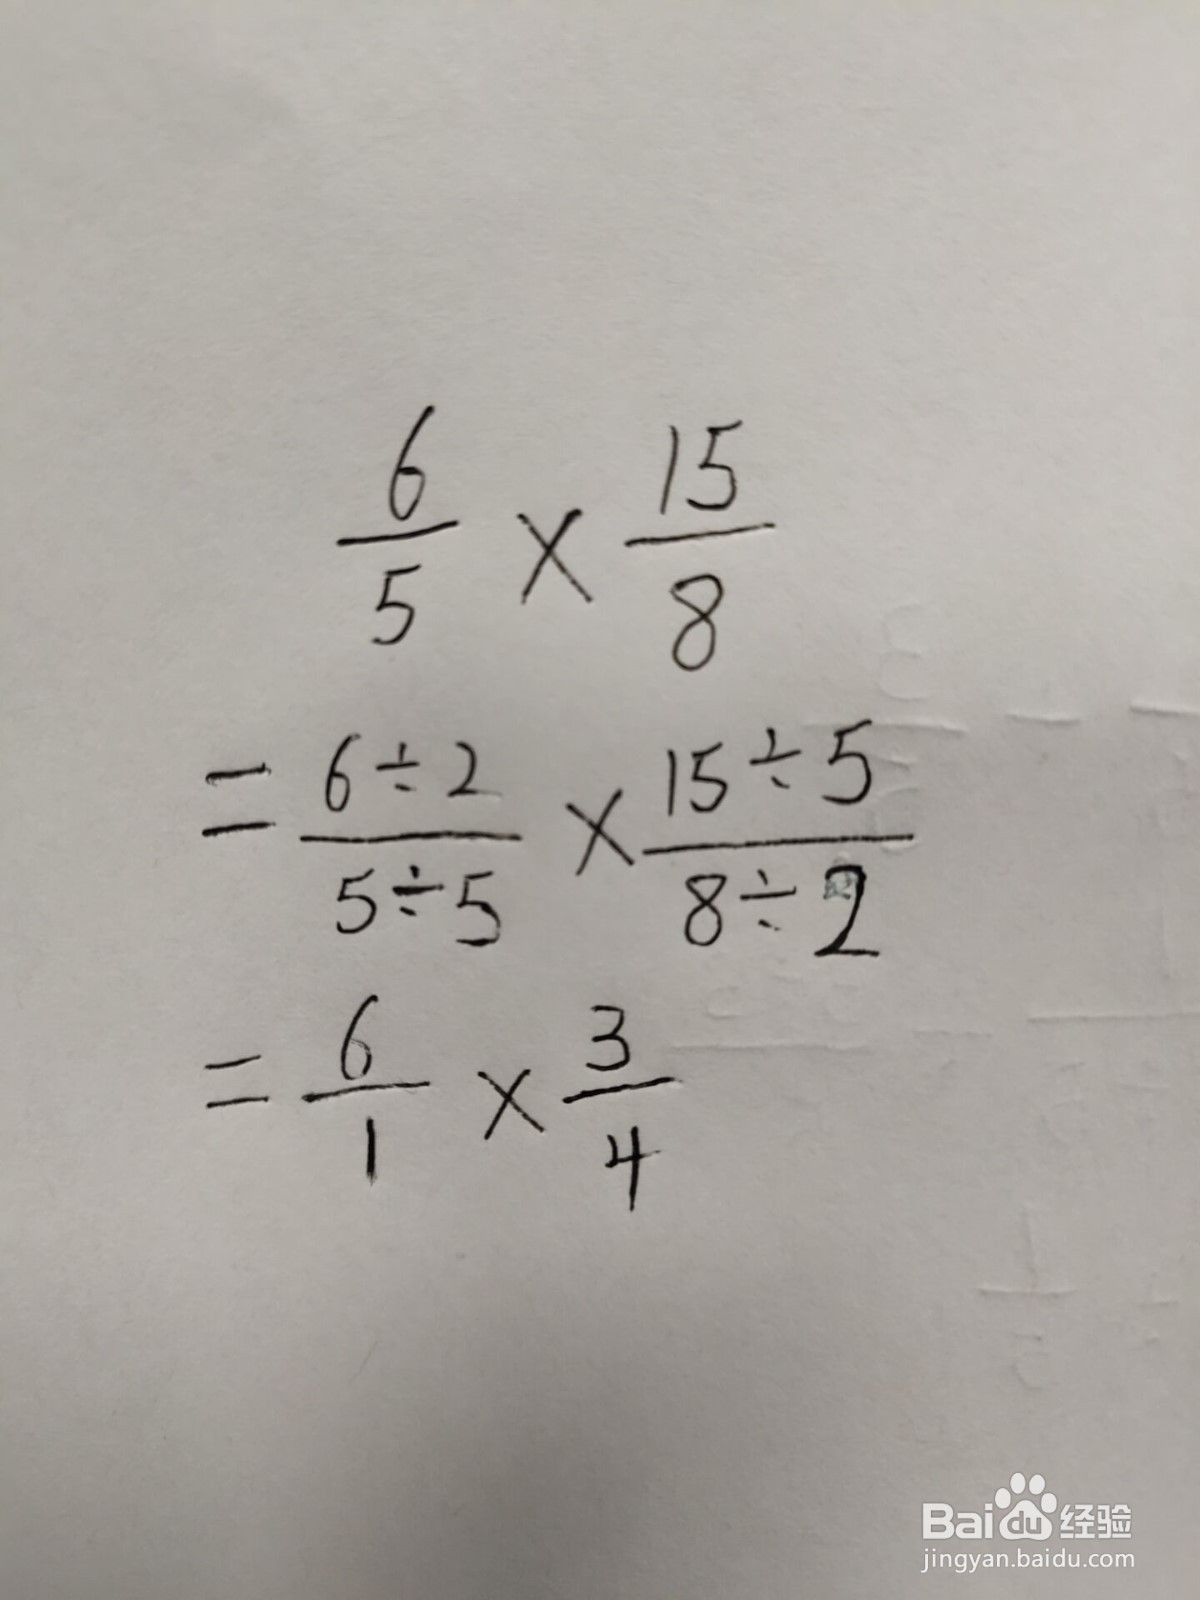 6/5 × 15/8
= 6÷2/5÷5 × 15÷5/8÷2
= 6/1 × 3/4
Bai du 经验
jingyan.baidu.com